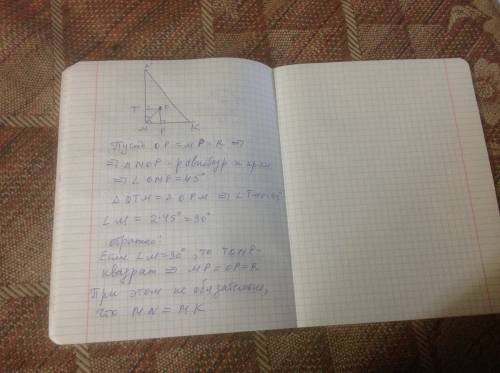 N
T O
M P K
Пусть OP = MP = R ⇒
⇒ △ MOP - равнобедр и прям
⇒ ∠ OMP = 45°
△ OTM = △ OPM ⇒ ∠ TMO = 45°
∠ M = 2·45° = 90°
обратно:
Если ∠ M = 90°, то TOMP-
квадрат ⇒ MP = OP = R
При этом не обязательно,
что MN = MK